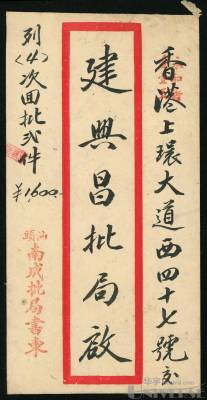 香港上環大道西四十七號交
建興昌批局啟
列〈4〉次回批弍件
¥1600—
汕頭
南成批局書柬